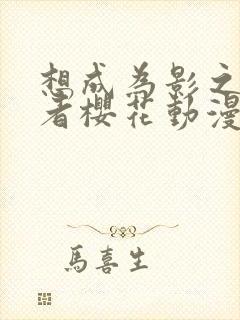 想成為影之
者櫻花動漫
馬喜生